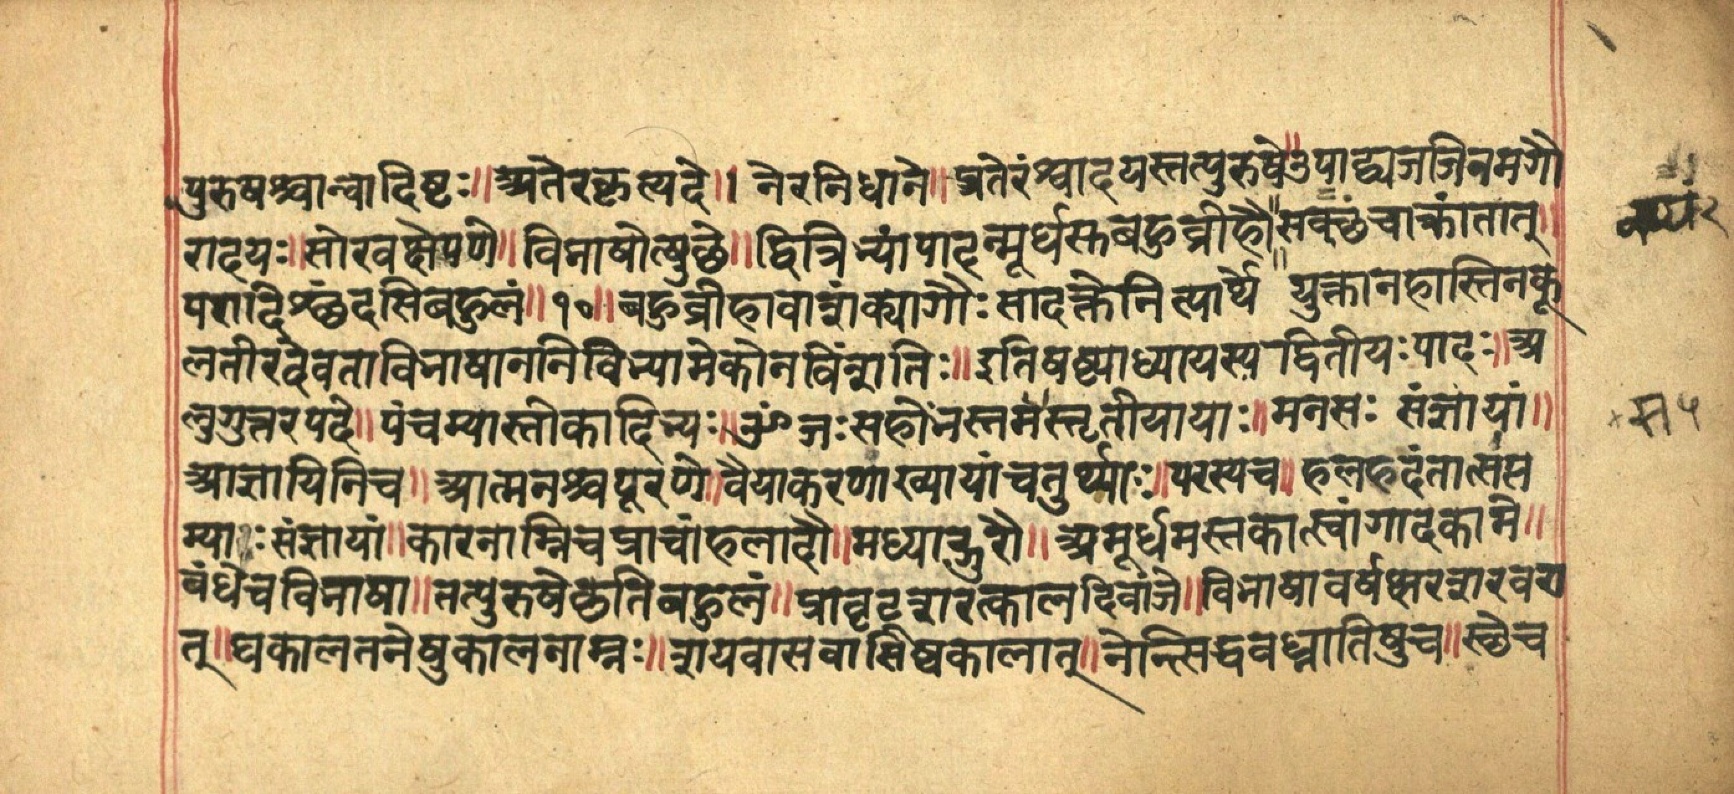 पुरुषश्चान्वादिष्टः॥ अतेरकृत्पदे॥ नेरनिधाने॥ प्रतेरंश्वादयस्तत्पुरुषे॥ उपाद्द्व्यजजिनमगौ
रादयः॥ सोरवक्षेपणे॥ विभाषोत्पुछे॥ द्वित्रिभ्यांपादन्मूर्धस्तबहुव्रीहौ॥ सक्छंचाक्रांतात्॥
परादिश्छंदसिबहुलं॥ १०॥ बहुव्रीहावाशंक्यागौः सादक्तेनित्यार्थे॥ युक्तानहास्तिनकू
लतीरदेवताविभाषाननिविभ्यामेकोनविंशतिः॥ इतिषष्ठ्याध्यायस्य द्वितीयः पादः॥ अ
लुगुत्तरपदे॥ पंचम्यास्तोकादिभ्यः॥ ओजःसहोंभस्तमस्तृतीयायाः॥ मनसः संज्ञायां॥
आज्ञायिनिच॥ आत्मनश्चपूरणे॥ वैयाकरणाख्यायांचतुर्थ्याः॥ परस्यच॥ हलहदंतात्संप्त
म्याः संज्ञायां॥ कारनाम्निचप्राचांहलादौ॥ मध्याद्गुरौ॥ अमूर्धमस्तकात्स्वांगादकामे॥
बंधेचविभाषा॥ तत्पुरुषेकृतिबहुलं॥ प्रावृट्शरत्कालदिवांजे॥ विभाषावर्षक्षरशरवरा
त्॥ घकालतनेषुकालनाम्नः॥ शयवासवासिष्वकालात्॥ नेन्त्सिद्धबध्नातिषुच॥ स्छेच